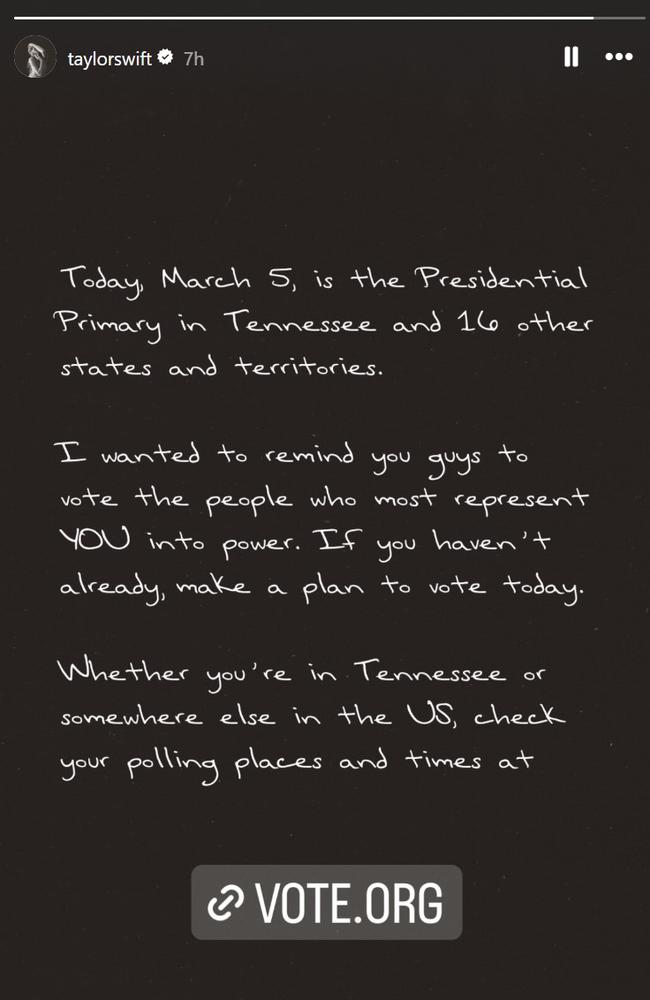 taylorswift 7h
Today, March 5, is the Presidential
Primary in Tennessee and 16 other
states and territories.
I wanted to remind you guys to
vote the people who most represent
YOU into power. If you haven't
already, make a plan to vote today.
Whether you're in Tennessee or
somewhere else in the US, check
your polling places and times at
VOTE.ORG